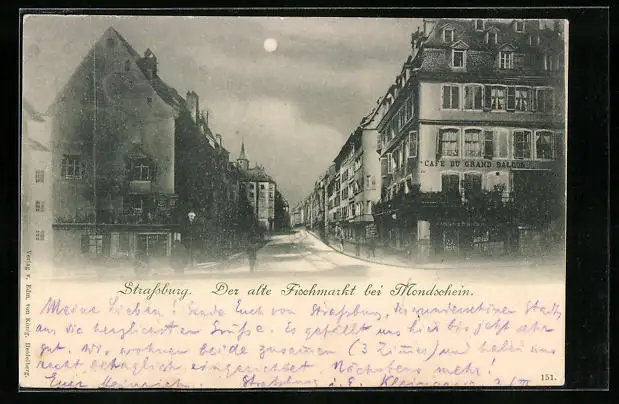 CAFÉ DU GRAND BALCON
Straßburg. Der alte Fischmarkt bei Mondschein.
Verlag v. Edm. von König, Heidelberg.
Meine Lieben! Sende Euch von Straßburg, der wunderschönen Stadt,
aus die herzlichsten Grüße. Es gefällt uns hier bis jetzt sehr
gut. Wir wohnen beide zusammen (3 Zimmer) und haben uns
recht behaglich eingerichtet. Nächstens mehr!
Euer Heinrich. Straßburg i. E.
151.